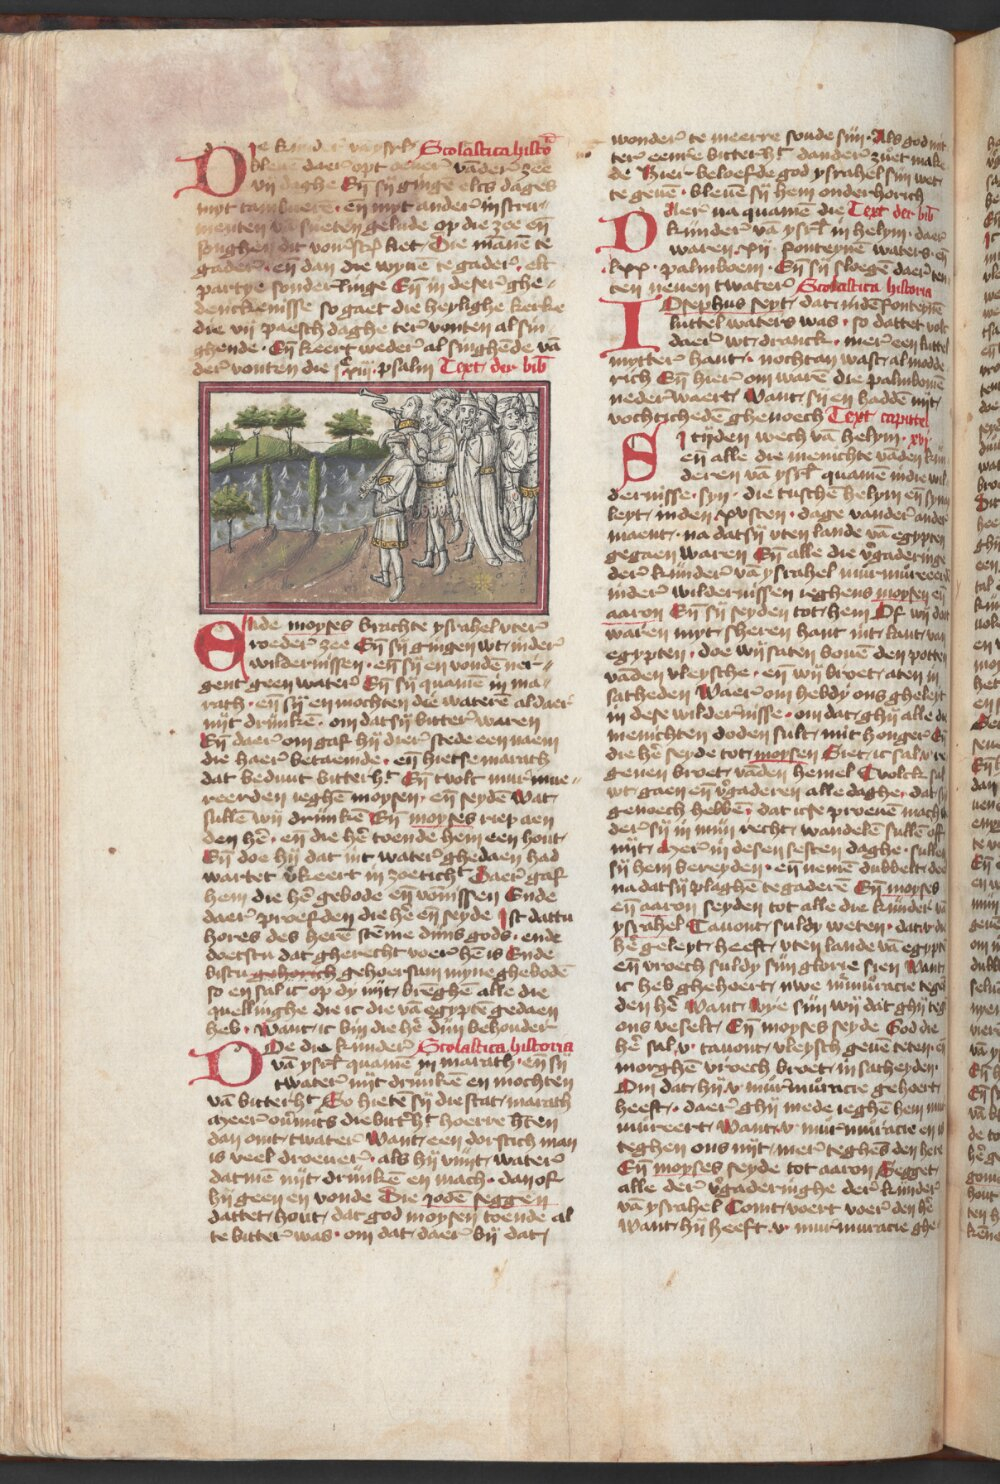 Die kinder van ysrl Scolastica histo
bleue daer opt oeuer vader zee
vij daghe Eñ sy ginge elcs dages
myt tambuere · eñ myt ander instru
menten va sueten gelude op die zee eñ
songhen dit vors liet Die mane te
gader · eñ dan die wyue te gader · elc
partye sonderlinge Eñ in deser ghe
denckenisse so gaet die heylighe kerke
die vij paeschdaghe ter vonten al sin
ghende · Eñ keert weder al singhede va
der vonten die psalm Text der bib
Ende moyses brachte ysrahel vter
roeder zee Eñ sy gingen wt inder
wildernissen · eñ sy en vonde ner
gent geen water Eñ sy quame in ma
rath · eñ sy en mochten die watere aldaer
nyt drinke · om dat sy bitter waren
Eñ daer om gaf hy dier stede een naem
die haer betaemde · eñ hietse marath
dat beduut bitterht Eñ tvolc murmue
reerden ieghe moysen · eñ seyde Wat
sulle wy drinke Eñ moyses riep aen
den he · eñ die he toende hem een hout
Eñ doe hy dat int water ghedaen had
wartet vkeert in zoeticht Daer gaf
hem die he gebode eñ vonissen Ende
daer proefden die he eñ seyde Ist dattu
hores des here steme dijns gods · ende
doetstu dat gherecht voer he is Ende
bistu gehorich gehoersam myne ghebode
so en sal ic op dy nyt brenghe alle die
quellinghe die ic die va egypte gedaen
heb · Want ic bin die he dijn behouder
Doe die kinder Scolastica historia
va ysrl quame in marath · eñ sy
twater nyt drinke en mochten
va bitterht So hieten sy die stat marath
Meer oumits die bittht hoerre hten
dan om twater Want een dorstich man
is veel droeuer · als hy vint water
datme nyt drinke en mach · dan of
hy geen en vonde Die joden seggen
dattet hout dat god moysen toende al
te bitter was · om dat daer by dat
wonder te meerre soude sijn · Als god mit
ter eenre bitterht dander zuet make
de Hier beloefde god ysrahel sijn wet
te geue · bleue sy hem onderhorich
Daer na quame die Text der bib
kinder va ysrl in helym · daer
waren xij fonteyne waters · eñ
lxx · palmboem · Eñ sy sloege daer ten
ten neuen twater Scolastica historia
Iosephus seyt dat inde fonteyne
luttel waters was · so dattet volc
daer wt dranck · mer een luttel
mytter hant · nochtan wast al modde
rich Eñ hier om ware die palmbome
nederwaert Want sy en hadde nyt
vochticheden ghenoech Text capittel
Si tyden wech va helym · xvi
eñ alle die menichte vaden kin
deren va ysrl quame in die wil
dernisse · syn · die tusche helym eñ synai
leyt inden xvsten · dage vander ander
maent · na dat sy vten lande va egypten
gegaen waren Eñ alle die vgaderinge
der kinder va ysrahel murmureerde
inder wildernissen ieghens moysen eñ
aaron Eñ sy seyden tot hem Of wy doot
waren myt sheren hant int lant van
egypten · doe wy saten boue den potten
vaden vleysche · eñ wy broet aten in
satheden Waer om hebdy ons gheleyt
in dese wildernisse · om dat ghy alle die
menichten doden sult mit honger Eñ
die he seyde tot moysen Siet ic sal v re
genen broet vaden hemel Tvolck sal
wt gaen eñ vgaderen alle daghe · dat sy
genoech hebbe · dat icse proeue mach
der sy in mijn recht wandele sulle of
nyt Mer in desen sesten daghe · sulle
sy hem bereyden · eñ neme dubbelt dee
na dat sy plaghe te gadere Eñ moyses
eñ aaron seyden tot alle die kinder va
ysrahel Tauont suldy weten · dat v die
he geleyt heeft vten lande va egypte
eñ vroech suldy sijn glorie sien Want
ic heb ghehoert uwe murmuracie tege
den he Want wye sijn wy dat ghy teg
ons veselt Eñ moyses seyde God die
he sal v · tauont vleysch geue teten · eñ
morghe vroech broet in satheyden
Om dat hy v murmuracie gehoert
heeft · daer ghy mede ieghe hem mur
mureert Want v murmuracie en is
teghen ons nyt mer teghes den here
Eñ moyses seyde tot aaron Segget
alle der vgaderinghe der kinder
va ysrahel Comt voert voer den he
Want hy heeft v murmuracie ghe